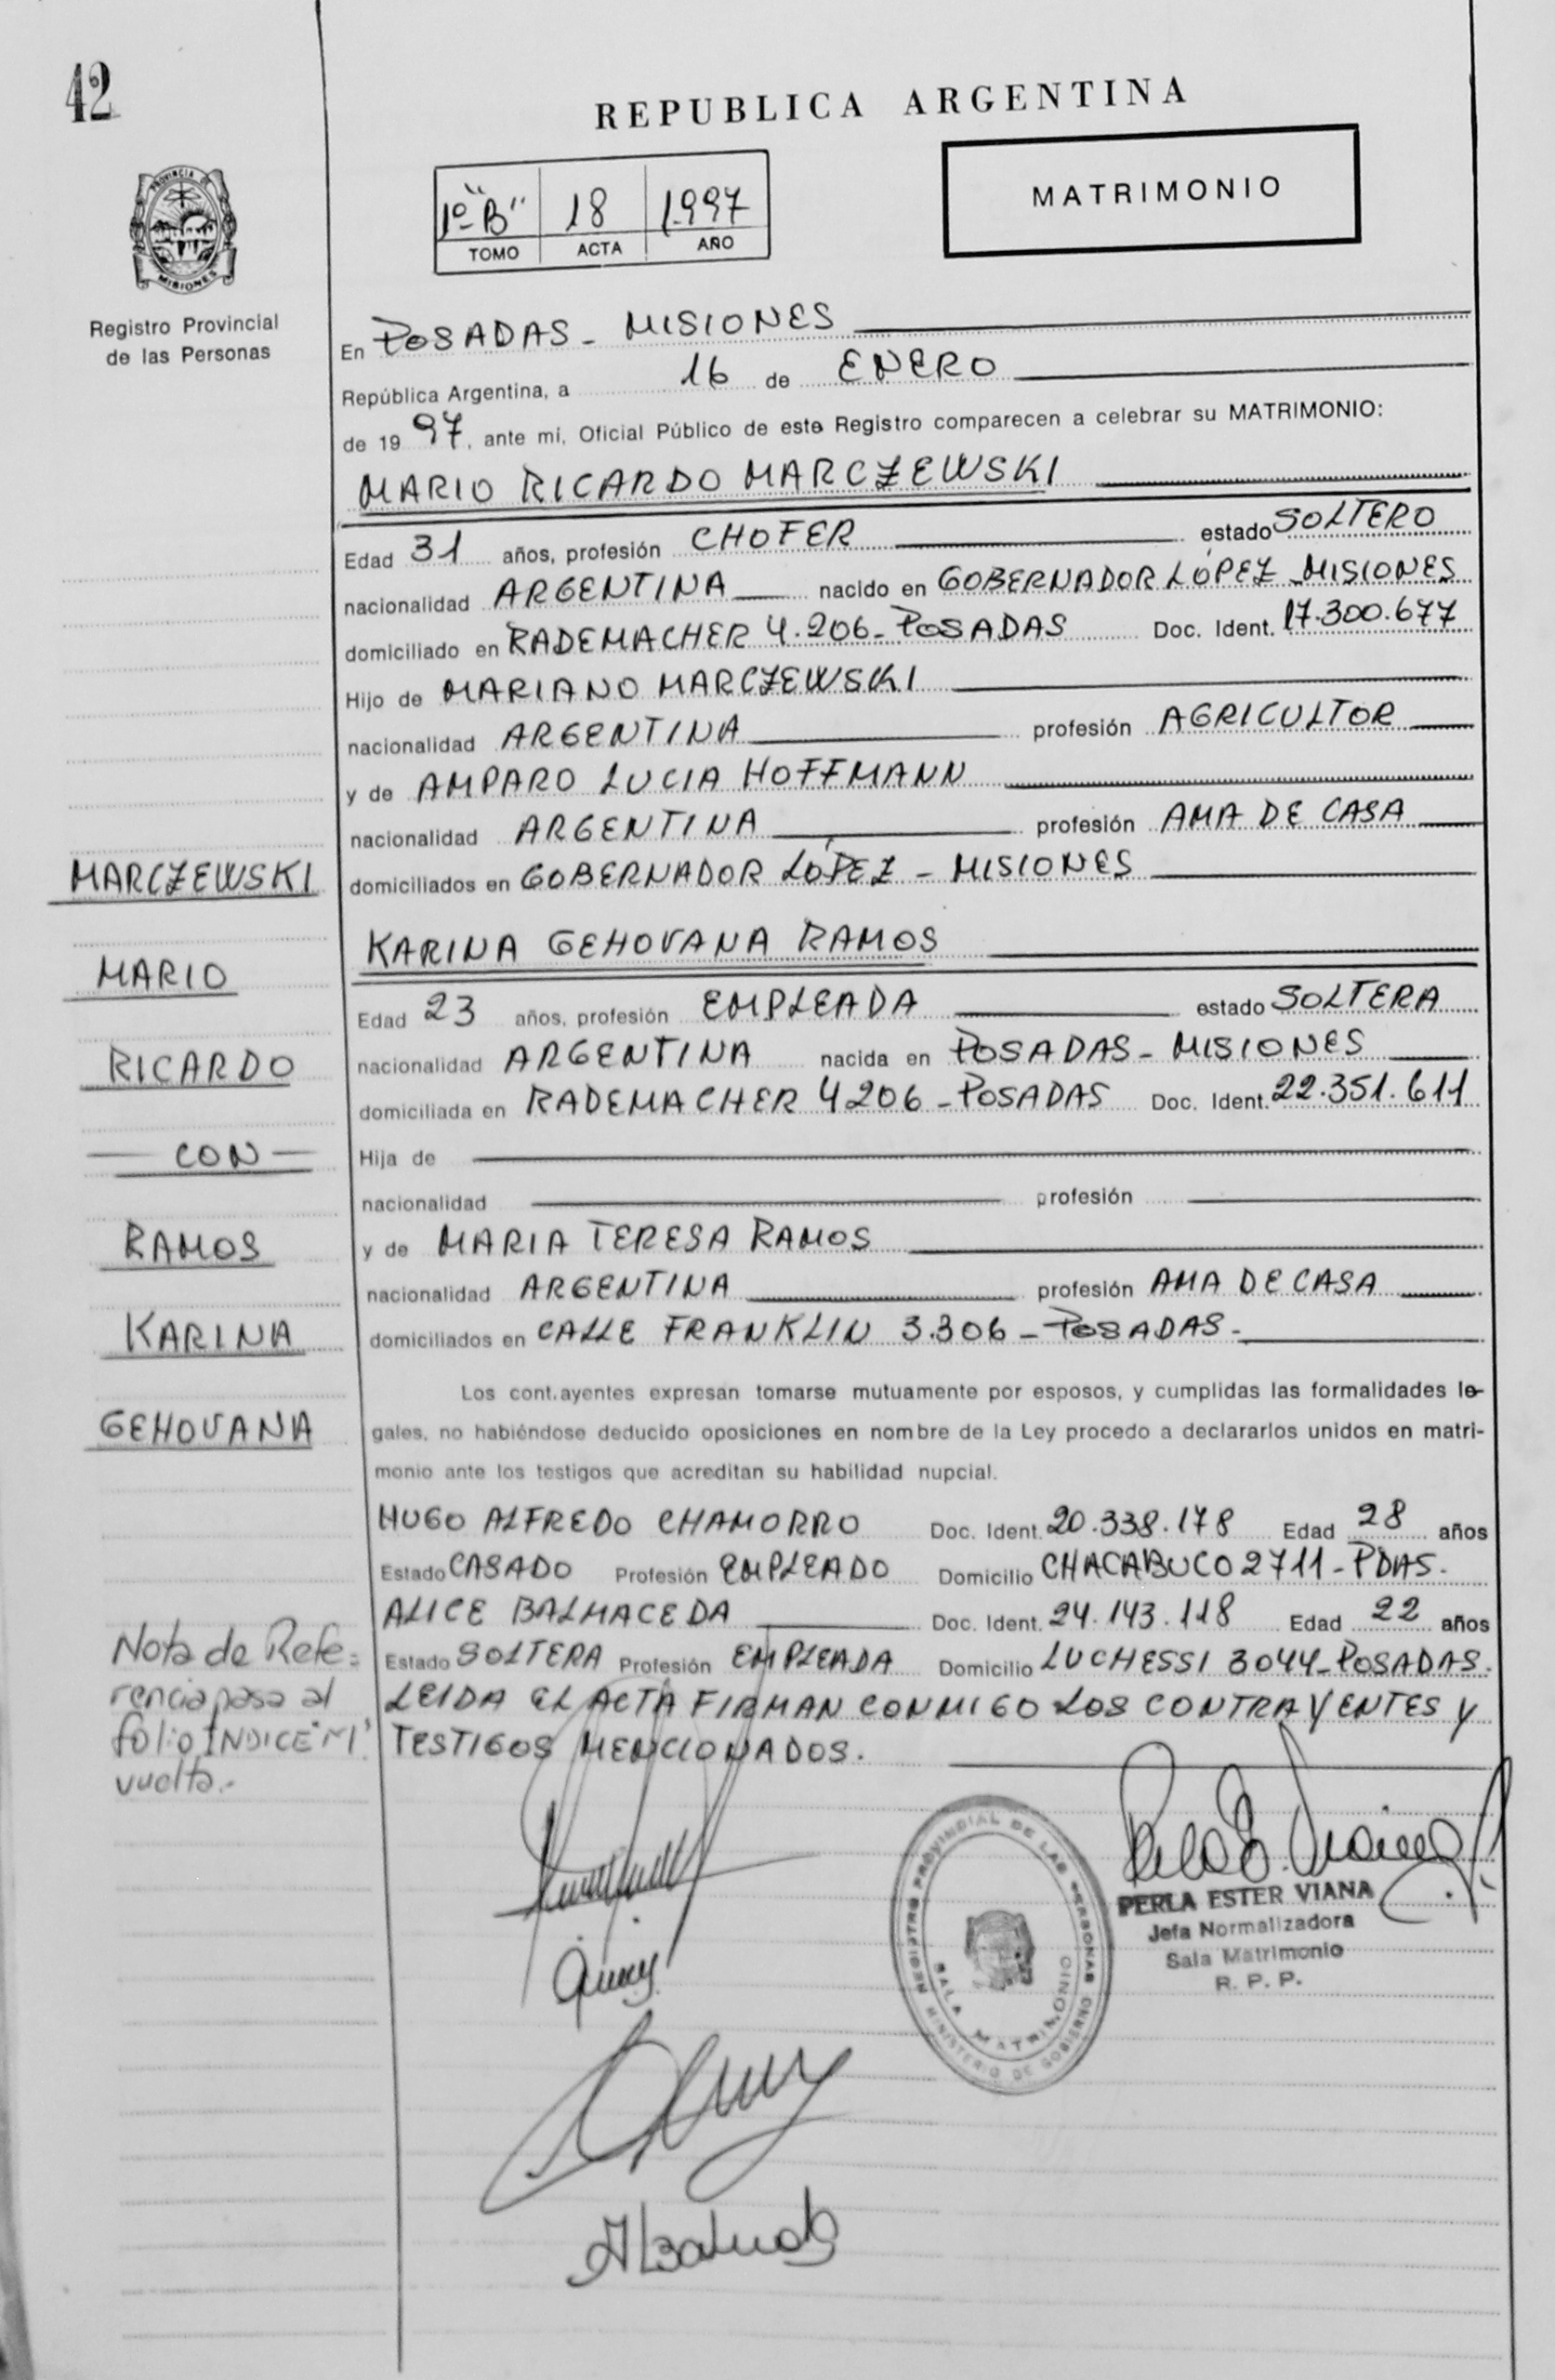 42
REPUBLICA ARGENTINA
PROVINCIA DE
MISIONES
Registro Provincial
de las Personas
1º "B" 18 1.997
TOMO ACTA AÑO
MATRIMONIO
En POSADAS - MISIONES
República Argentina, a 16 de ENERO
de 19 97, ante mí, Oficial Público de este Registro comparecen a celebrar su MATRIMONIO:
MARIO RICARDO MARCZEWSKI
Edad 31 años, profesión CHOFER estado SOLTERO
nacionalidad ARGENTINA nacido en GOBERNADOR LÓPEZ - MISIONES
domiciliado en RADEMACHER 4.206 - POSADAS Doc. Ident. 17.300.677
Hijo de MARIANO MARCZEWSKI
nacionalidad ARGENTINA profesión AGRICULTOR
y de AMPARO LUCIA HOFFMANN
nacionalidad ARGENTINA profesión AMA DE CASA
domiciliados en GOBERNADOR LÓPEZ - MISIONES
KARINA GEHOVANA RAMOS
Edad 23 años, profesión EMPLEADA estado SOLTERA
nacionalidad ARGENTINA nacida en POSADAS - MISIONES
domiciliada en RADEMACHER 4206 - POSADAS Doc. Ident. 22.351.611
Hija de
nacionalidad profesión
y de MARIA TERESA RAMOS
nacionalidad ARGENTINA profesión AMA DE CASA
domiciliados en CALLE FRANKLIN 3.306 - POSADAS -
Los cont.ayentes expresan tomarse mutuamente por esposos, y cumplidas las formalidades le-
gales, no habiéndose deducido oposiciones en nombre de la Ley procedo a declararlos unidos en matri-
monio ante los testigos que acreditan su habilidad nupcial.
HUGO ALFREDO CHAMORRO Doc. Ident. 20.338.178 Edad 28 años
Estado CASADO Profesión EMPLEADO Domicilio CHACABUCO 2711 - PDAS.
ALICE BALMACEDA Doc. Ident. 24.143.118 Edad 22 años
Estado SOLTERA Profesión EMPLEADA Domicilio LUCHESSI 3044 - POSADAS.
LEIDA EL ACTA FIRMAN CONMIGO LOS CONTRAYENTES Y
TESTIGOS MENCIONADOS.
MARCZEWSKI
MARIO
RICARDO
- CON -
RAMOS
KARINA
GEHOVANA
Nota de Refe=
rencia pasa al
folio INDICE "M"
vuelta.-
REGISTRO PROVINCIAL DE LAS PERSONAS
MINISTERIO DE GOBIERNO
SALA MATRIMONIO
PERLA ESTER VIANA
Jefa Normalizadora
Sala Matrimonio
R. P. P.